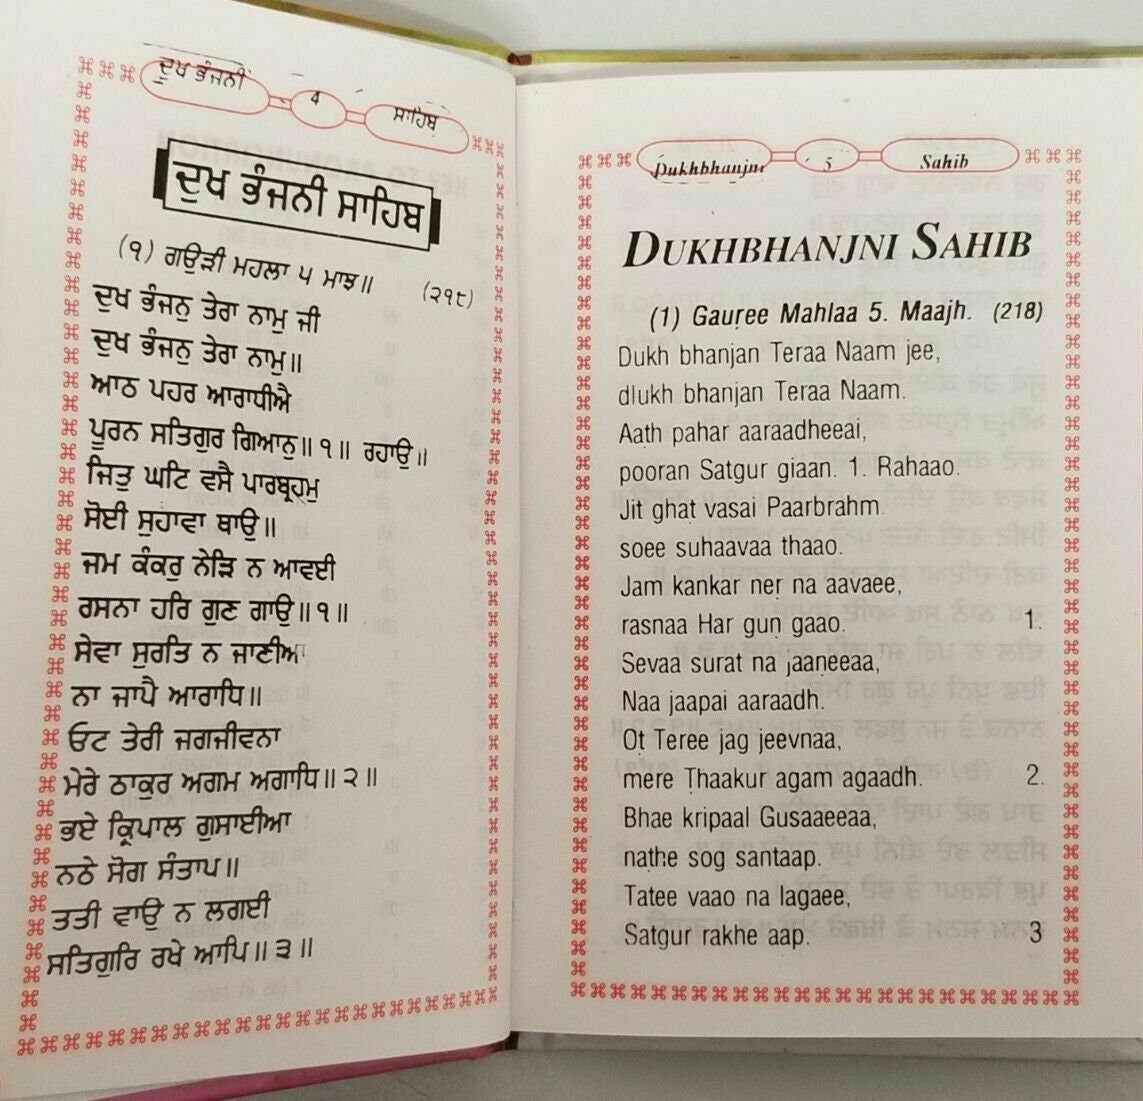 ਦੁਖ ਭੰਜਨੀ 4 ਸਾਹਿਬ
ਦੁਖ ਭੰਜਨੀ ਸਾਹਿਬ
(੧) ਗਉੜੀ ਮਹਲਾ ੫ ਮਾਝ॥ (੨੧੮)
ਦੁਖ ਭੰਜਨੁ ਤੇਰਾ ਨਾਮੁ ਜੀ
ਦੁਖ ਭੰਜਨੁ ਤੇਰਾ ਨਾਮੁ॥
ਆਠ ਪਹਰ ਆਰਾਧੀਐ
ਪੂਰਨ ਸਤਿਗੁਰ ਗਿਆਨੁ॥੧॥ ਰਹਾਉ॥
ਜਿਤੁ ਘਟਿ ਵਸੈ ਪਾਰਬ੍ਰਹਮੁ
ਸੋਈ ਸੁਹਾਵਾ ਥਾਉ॥
ਜਮ ਕੰਕਰੁ ਨੇੜਿ ਨ ਆਵਈ
ਰਸਨਾ ਹਰਿ ਗੁਣ ਗਾਉ॥੧॥
ਸੇਵਾ ਸੁਰਤਿ ਨ ਜਾਣੀਆ
ਨਾ ਜਾਪੈ ਆਰਾਧਿ॥
ਓਟ ਤੇਰੀ ਜਗਜੀਵਨਾ
ਮੇਰੇ ਠਾਕੁਰ ਅਗਮ ਅਗਾਧਿ॥੨॥
ਭਏ ਕ੍ਰਿਪਾਲ ਗੁਸਾਈਆ
ਨਠੇ ਸੋਗ ਸੰਤਾਪ॥
ਤਤੀ ਵਾਉ ਨ ਲਗਈ
ਸਤਿਗੁਰਿ ਰਖੇ ਆਪਿ॥੩॥
Dukhbhanjni 5 Sahib
DUKHBHANJNI SAHIB
(1) Gauṛee Mahlaa 5. Maajh. (218)
Dukh bhanjan Teraa Naam jee,
dlukh bhanjan Teraa Naam.
Aath pahar aaraadheeai,
pooran Satgur giaan. 1. Rahaao.
Jit ghaṭ vasai Paarbrahm.
soee suhaavaa thaao.
Jam kankar neṛ na aavaee,
rasnaa Har guṇ gaao. 1.
Sevaa surat na jaaneeaa,
Naa jaapai aaraadh.
Oṭ Teree jag jeevnaa,
mere Ṭhaakur agam agaadh. 2.
Bhae kripaal Gusaaeeaa,
naṭhe sog santaap.
Tatee vaao na lagaee,
Satgur rakhe aap. 3